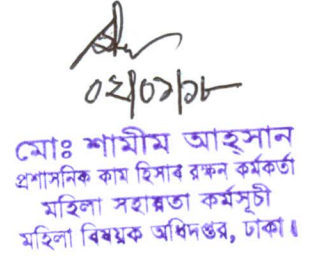 ০২/০১/১৮
মোঃ শামীম আহ্সান
প্রশাসনিক কাম হিসাব রক্ষন কর্মকর্তা
মহিলা সহায়তা কর্মসূচী
মহিলা বিষয়ক অধিদপ্তর, ঢাকা।